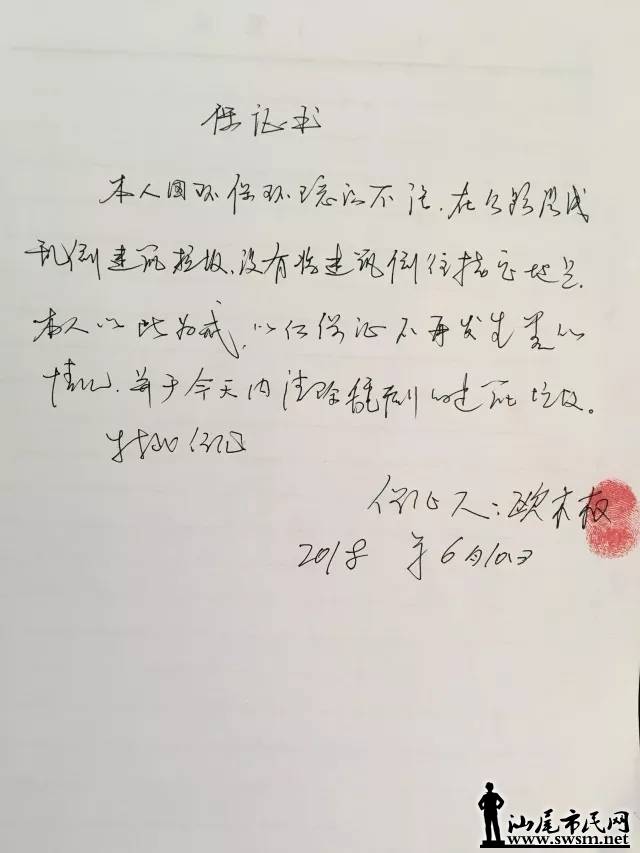 保证书
本人因环保环境认不清，在公路段或
乱倒建筑垃圾，没有将建筑倒往指定地点．
本人以此为戒，以后保证不再发生类似
情况，并于今天内清除乱倒的建筑垃圾。
特此保证
保证人：欧木权
2018年6月10日
汕尾市民网
www.swsm.net